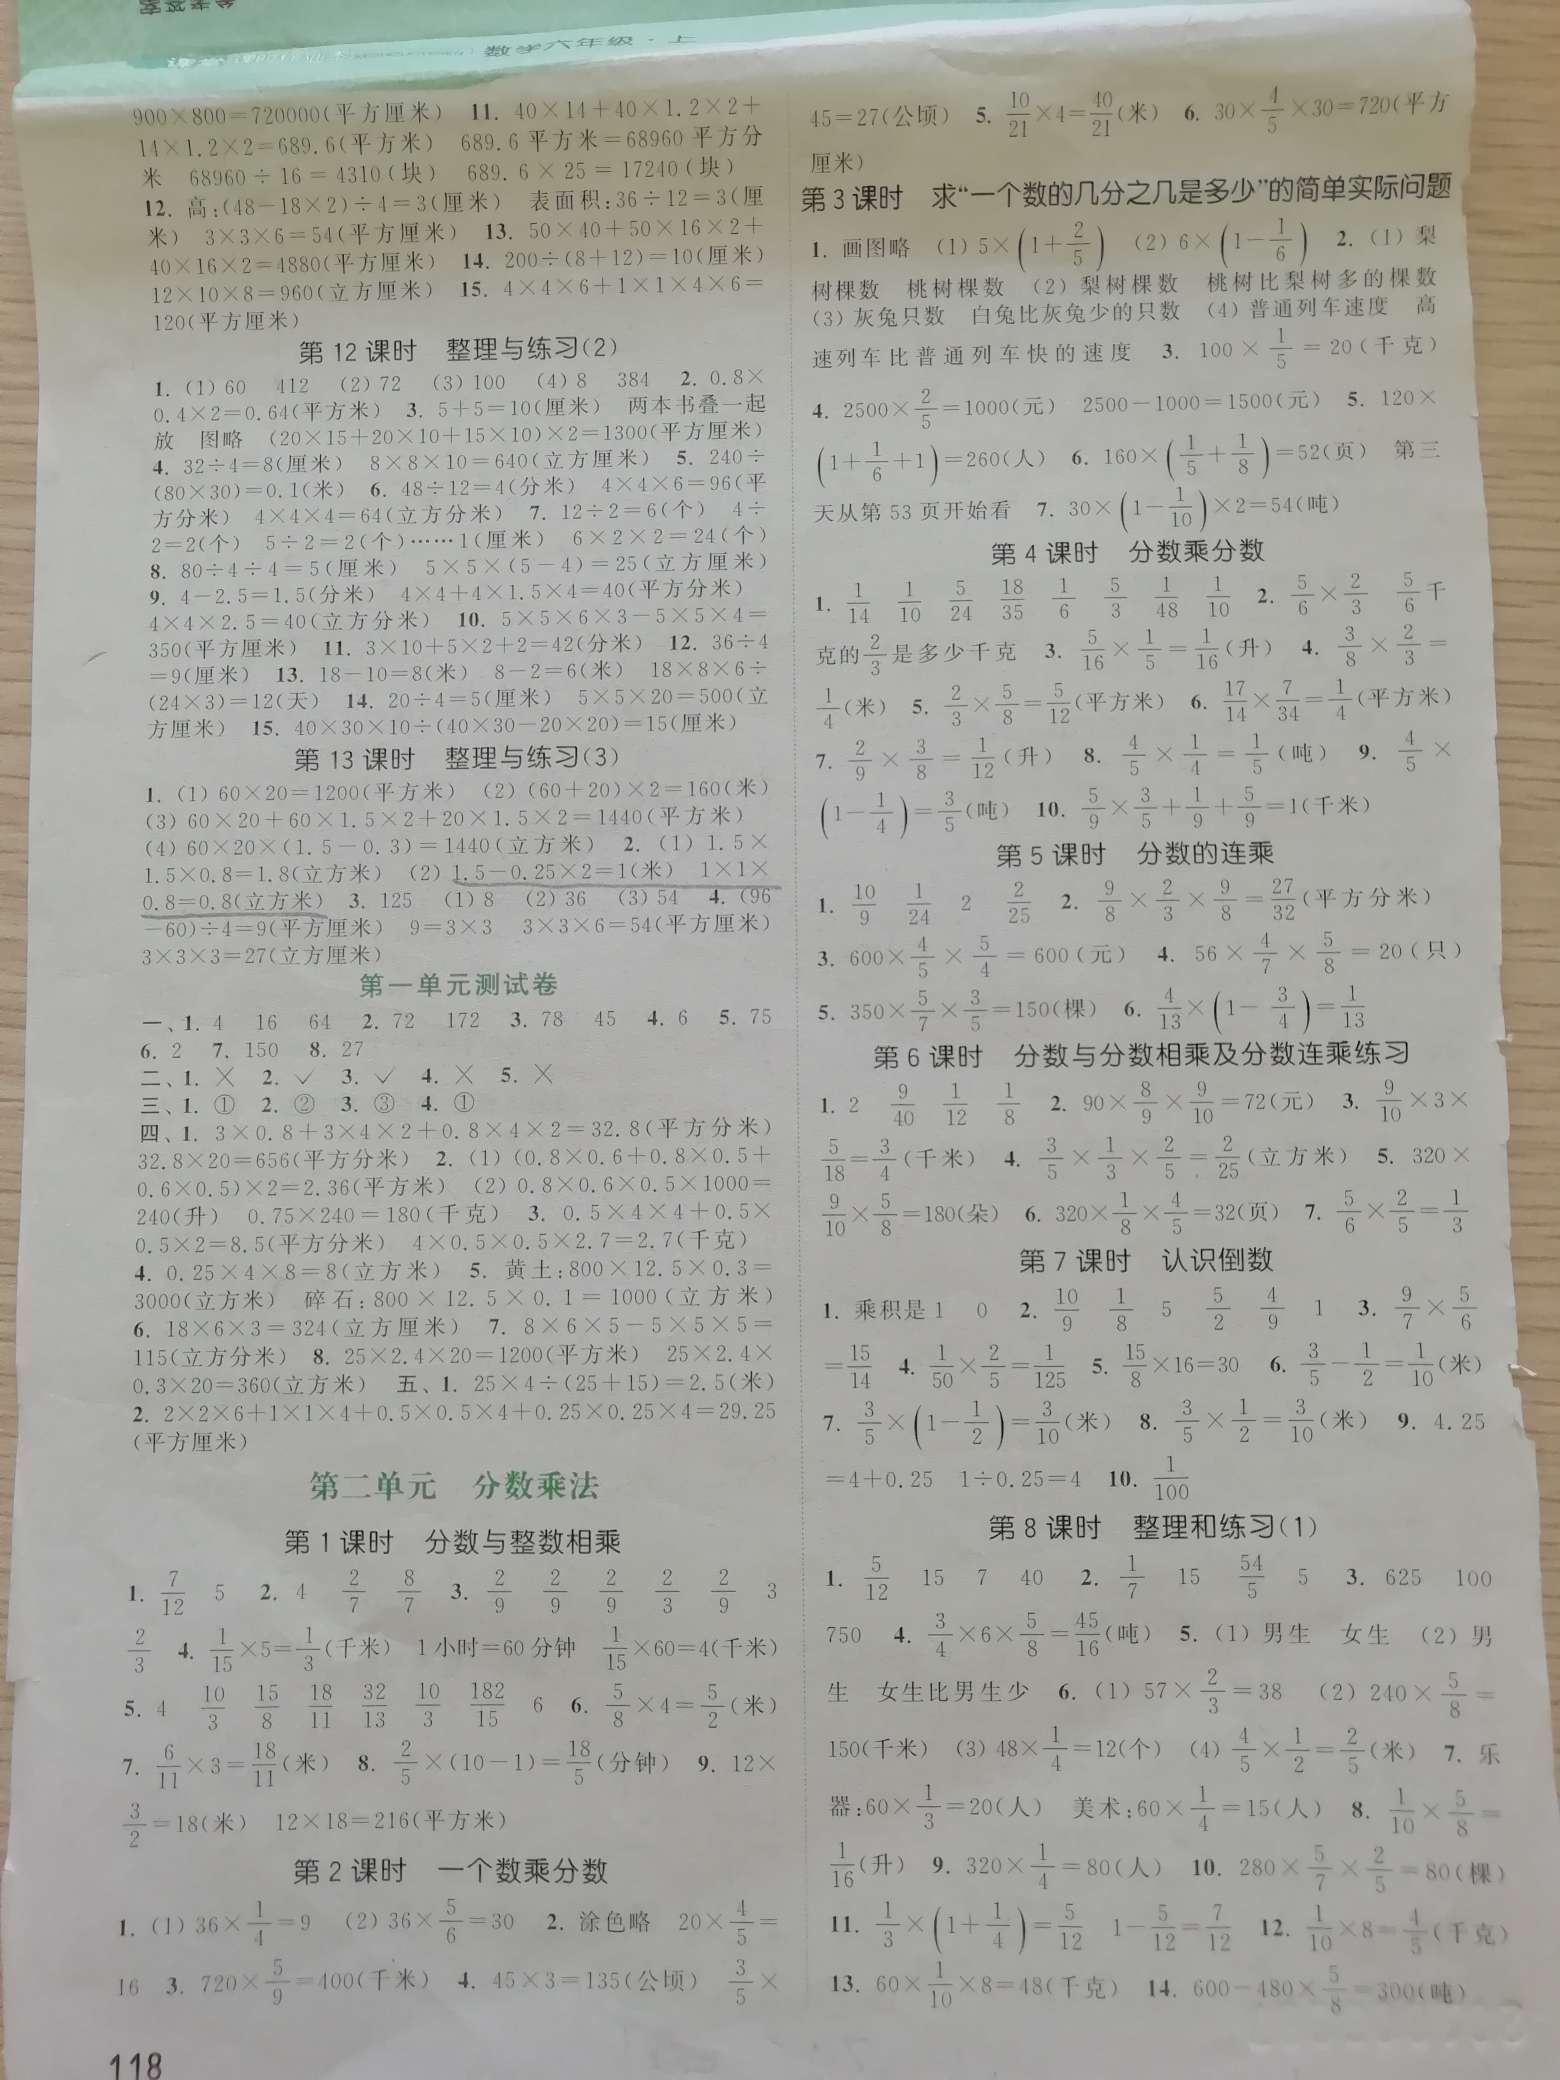 数学六年级·上
900×800=720000(平方厘米) 11. 40×14+40×1.2×2+
14×1.2×2=689.6(平方米) 689.6平方米=68960平方分
米 68960÷16=4310(块) 689.6×25=17240(块)
12. 高:(48-18×2)÷4=3(厘米) 表面积:36÷12=3(厘
米) 3×3×6=54(平方厘米) 13. 50×40+50×16×2+
40×16×2=4880(平方厘米) 14. 200÷(8+12)=10(厘米)
12×10×8=960(立方厘米) 15. 4×4×6+1×1×4×6=
120(平方厘米)
第12课时 整理与练习(2)
1. (1)60 412 (2)72 (3)100 (4)8 384 2. 0.8×
0.4×2=0.64(平方米) 3. 5+5=10(厘米) 两本书叠一起
放 图略 (20×15+20×10+15×10)×2=1300(平方厘米)
4. 32÷4=8(厘米) 8×8×10=640(立方厘米) 5. 240÷
(80×30)=0.1(米) 6. 48÷12=4(分米) 4×4×6=96(平
方分米) 4×4×4=64(立方分米) 7. 12÷2=6(个) 4÷
2=2(个) 5÷2=2(个)……1(厘米) 6×2×2=24(个)
8. 80÷4÷4=5(厘米) 5×5×(5-4)=25(立方厘米)
9. 4-2.5=1.5(分米) 4×4+4×1.5×4=40(平方分米)
4×4×2.5=40(立方分米) 10. 5×5×6×3-5×5×4=
350(平方厘米) 11. 3×10+5×2+2=42(分米) 12. 36÷4
=9(厘米) 13. 18-10=8(米) 8-2=6(米) 18×8×6÷
(24×3)=12(天) 14. 20÷4=5(厘米) 5×5×20=500(立
方厘米) 15. 40×30×10÷(40×30-20×20)=15(厘米)
第13课时 整理与练习(3)
1. (1)60×20=1200(平方米) (2)(60+20)×2=160(米)
(3)60×20+60×1.5×2+20×1.5×2=1440(平方米)
(4)60×20×(1.5-0.3)=1440(立方米) 2. (1)1.5×
1.5×0.8=1.8(立方米) (2)1.5-0.25×2=1(米) 1×1×
0.8=0.8(立方米) 3. 125 (1)8 (2)36 (3)54 4. (96
-60)÷4=9(平方厘米) 9=3×3 3×3×6=54(平方厘米)
3×3×3=27(立方厘米)
第一单元测试卷
一、1. 4 16 64 2. 72 172 3. 78 45 4. 6 5. 75
6. 2 7. 150 8. 27
二、1. × 2. ✓ 3. ✓ 4. × 5. ×
三、1. ① 2. ② 3. ③ 4. ①
四、1. 3×0.8+3×4×2+0.8×4×2=32.8(平方分米)
32.8×20=656(平方分米) 2. (1)(0.8×0.6+0.8×0.5+
0.6×0.5)×2=2.36(平方米) (2)0.8×0.6×0.5×1000=
240(升) 0.75×240=180(千克) 3. 0.5×4×4+0.5×
0.5×2=8.5(平方分米) 4×0.5×0.5×2.7=2.7(千克)
4. 0.25×4×8=8(立方米) 5. 黄土:800×12.5×0.3=
3000(立方米) 碎石:800×12.5×0.1=1000(立方米)
6. 18×6×3=324(立方厘米) 7. 8×6×5-5×5×5=
115(立方分米) 8. 25×2.4×20=1200(平方米) 25×2.4×
0.3×20=360(立方米) 五、1. 25×4÷(25+15)=2.5(米)
2. 2×2×6+1×1×4+0.5×0.5×4+0.25×0.25×4=29.25
(平方厘米)
第二单元 分数乘法
第1课时 分数与整数相乘
1. 7/12 5 2. 4 2/7 8/7 3. 2/9 2/9 2/9 2/3 2/9 3
2/3 4. 1/15×5=1/3(千米) 1小时=60分钟 1/15×60=4(千米)
5. 4 10/3 15/8 18/11 32/13 10/3 182/15 6 6. 5/8×4=5/2(米)
7. 6/11×3=18/11(米) 8. 2/5×(10-1)=18/5(分钟) 9. 12×
3/2=18(米) 12×18=216(平方米)
第2课时 一个数乘分数
1. (1)36×1/4=9 (2)36×5/6=30 2. 涂色略 20×4/5=
16 3. 720×5/9=400(千米) 4. 45×3=135(公顷) 3/5×
118
45=27(公顷) 5. 10/21×4=40/21(米) 6. 30×4/5×30=720(平方
厘米)
第3课时 求“一个数的几分之几是多少”的简单实际问题
1. 画图略 (1)5×(1+2/5) (2)6×(1-1/6) 2. (1)梨
树棵数 桃树棵数 (2)梨树棵数 桃树比梨树多的棵数
(3)灰兔只数 白兔比灰兔少的只数 (4)普通列车速度 高
速列车比普通列车快的速度 3. 100×1/5=20(千克)
4. 2500×2/5=1000(元) 2500-1000=1500(元) 5. 120×
(1+1/6+1)=260(人) 6. 160×(1/5+1/8)=52(页) 第三
天从第53页开始看 7. 30×(1-1/10)×2=54(吨)
第4课时 分数乘分数
1. 1/14 1/10 5/24 18/35 1/6 5/3 1/48 1/10 2. 5/6×2/3 5/6千
克的2/3是多少千克 3. 5/16×1/5=1/16(升) 4. 3/8×2/3=
1/4(米) 5. 2/3×5/8=5/12(平方米) 6. 17/14×7/34=1/4(平方米)
7. 2/9×3/8=1/12(升) 8. 4/5×1/4=1/5(吨) 9. 4/5×
(1-1/4)=3/5(吨) 10. 5/9×3/5+1/9+5/9=1(千米)
第5课时 分数的连乘
1. 10/9 1/24 2 2/25 2. 9/8×2/3×9/8=27/32(平方分米)
3. 600×4/5×5/4=600(元) 4. 56×4/7×5/8=20(只)
5. 350×5/7×3/5=150(棵) 6. 4/13×(1-3/4)=1/13
第6课时 分数与分数相乘及分数连乘练习
1. 2 9/40 1/12 1/8 2. 90×8/9×9/10=72(元) 3. 9/10×3×
5/18=3/4(千米) 4. 3/5×1/3×2/5=2/25(立方米) 5. 320×
9/10×5/8=180(朵) 6. 320×1/8×4/5=32(页) 7. 5/6×2/5=1/3
第7课时 认识倒数
1. 乘积是1 0 2. 10/9 1/8 5 5/2 4/9 1 3. 9/7×5/6
=15/14 4. 1/50×2/5=1/125 5. 15/8×16=30 6. 3/5-1/2=1/10(米)
7. 3/5×(1-1/2)=3/10(米) 8. 3/5×1/2=3/10(米) 9. 4.25
=4+0.25 1÷0.25=4 10. 1/100
第8课时 整理和练习(1)
1. 5/12 15 7 40 2. 1/7 15 54/5 5 3. 625 100
750 4. 3/4×6×5/8=45/16(吨) 5. (1)男生 女生 (2)男
生 女生比男生少 6. (1)57×2/3=38 (2)240×5/8=
150(千米) (3)48×1/4=12(个) (4)4/5×1/2=2/5(米) 7. 乐
器:60×1/3=20(人) 美术:60×1/4=15(人) 8. 1/10×5/8=
1/16(升) 9. 320×1/4=80(人) 10. 280×5/7×2/5=80(棵)
11. 1/3×(1+1/4)=5/12 1-5/12=7/12 12. 1/10×8=4/5(千克)
13. 60×1/10×8=48(千克) 14. 600-480×5/8=300(吨)